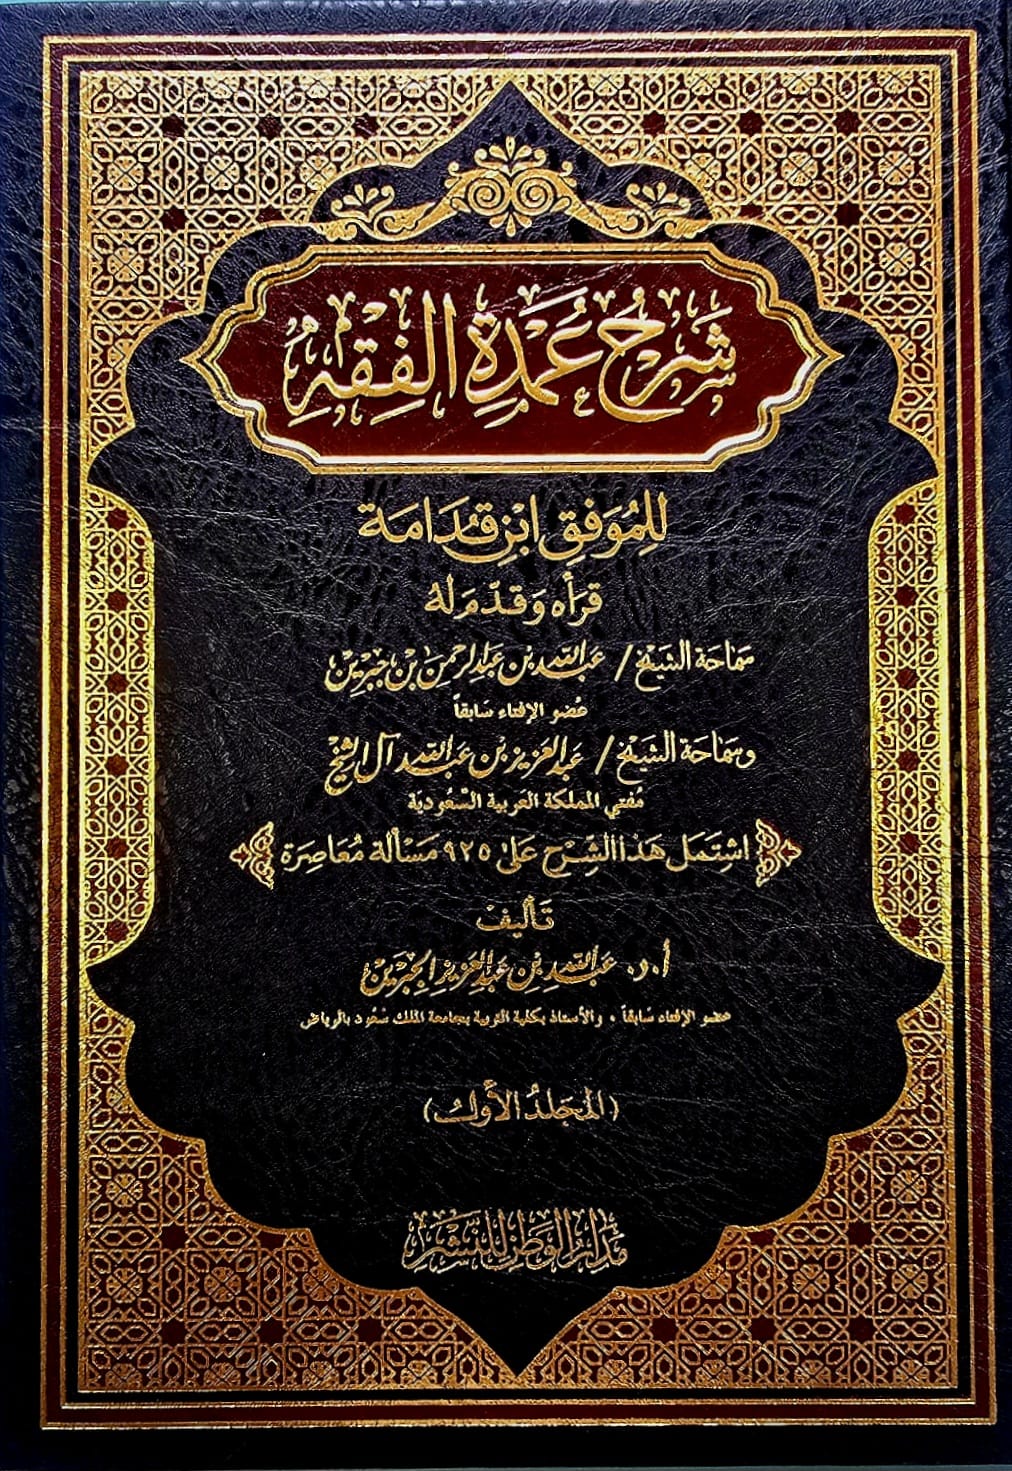 شَرْحُ عُمْدَةِ الفِقْهِ
لِلمُوَفِّقِ ابْنِ قُدَامَة
قرَأَه وَقدّمَ لهُ
سَمَاحَة الشَيْخ / عَبْد اللّه بْن عَبْد الرحمن بْن جبْرِيْن
عُضو الإفتاء سَابقاً
وسَمَاحَة الشَيْخ / عَبْد العَزيز بْن عَبْد اللّه آل الشيخ
مُفتي المملكة العَربية السّعُوديَة
اشتَمَل هَذا الشّرْح عَلى ٩٢٥ مَسْألة مُعَاصِرَة
تَأليفْ
أ.د. عَبْد اللّه بْن عَبْد العَزيز الجبْرِيْن
عضو الإفتاء سَابقاً ، والأستاذ بكلية التربية بجَامعة الملك سُعُود بالرياض
(المجَلدُ الأَوّل)
مَدَارُ الوَطَن للنَّشْر